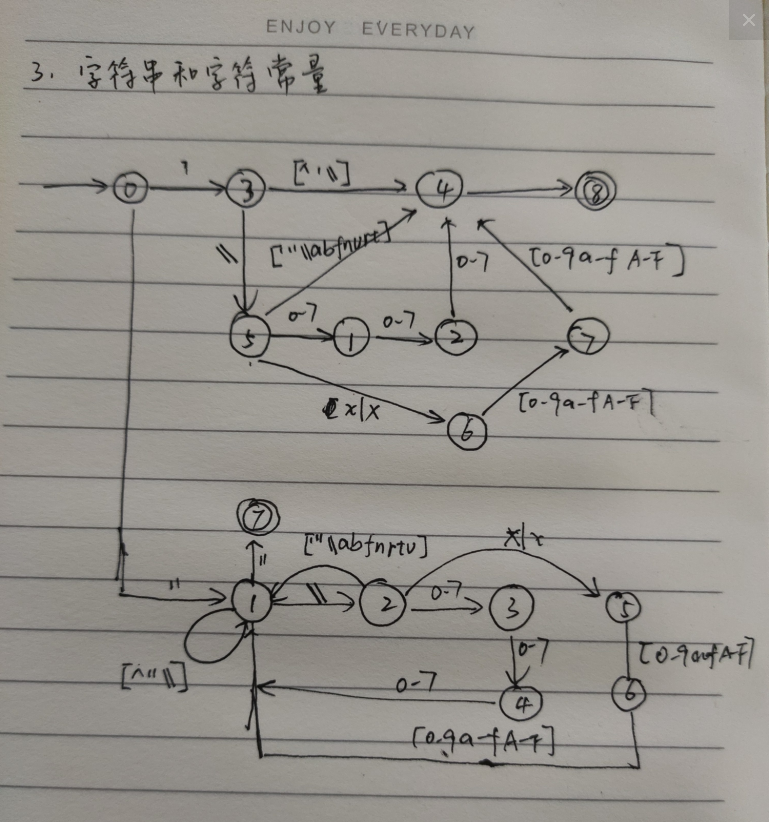 ENJOY EVERYDAY
3. 字符串和字符常量
0 ' 3 [^'\\] 4 8
\\ ["'\\abfnvrt] 0-7 [0-9a-f A-F]
5 0-7 1 0-7 2 7
x|X 6 [0-9a-fA-F]
7
" ["'\\abfnrtv] x|x
" 1 \\ 2 0-7 3 5
0-7 [0-9a-fA-F]
[^"\\] 0-7 4 6
[0-9a-fA-F]